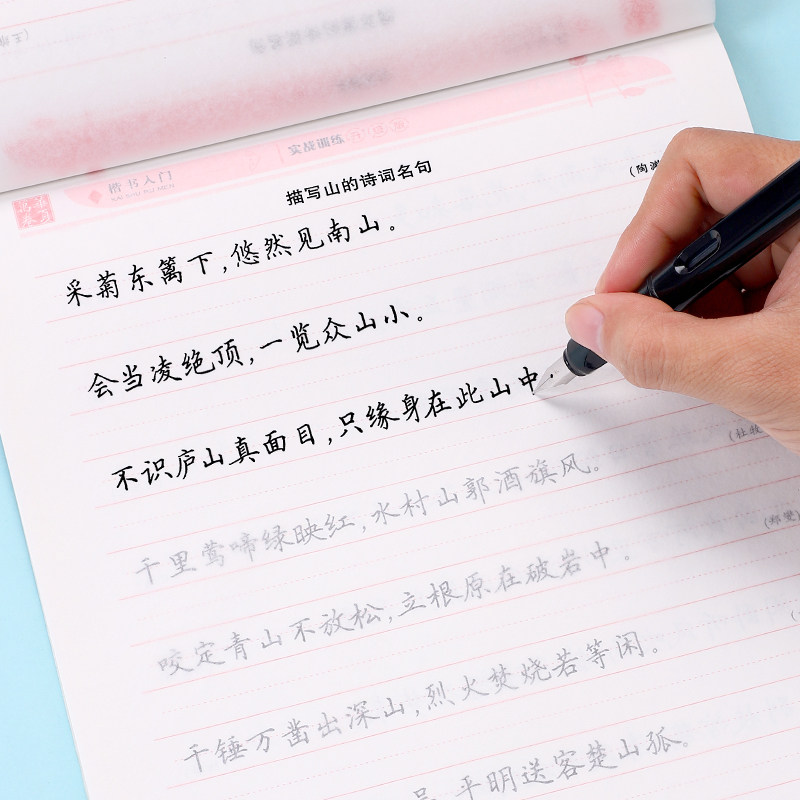 实战训练
楷书入门
描写山的诗词名句
(陶渊
采菊东篱下,悠然见南山。
会当凌绝顶,一览众山小。
不识庐山真面目,只缘身在此山中
(杜牧
千里莺啼绿映红,水村山郭酒旗风。
(郑燮)
咬定青山不放松,立根原在破岩中。
千锤万凿出深山,烈火焚烧若等闲。
平明送客楚山孤。